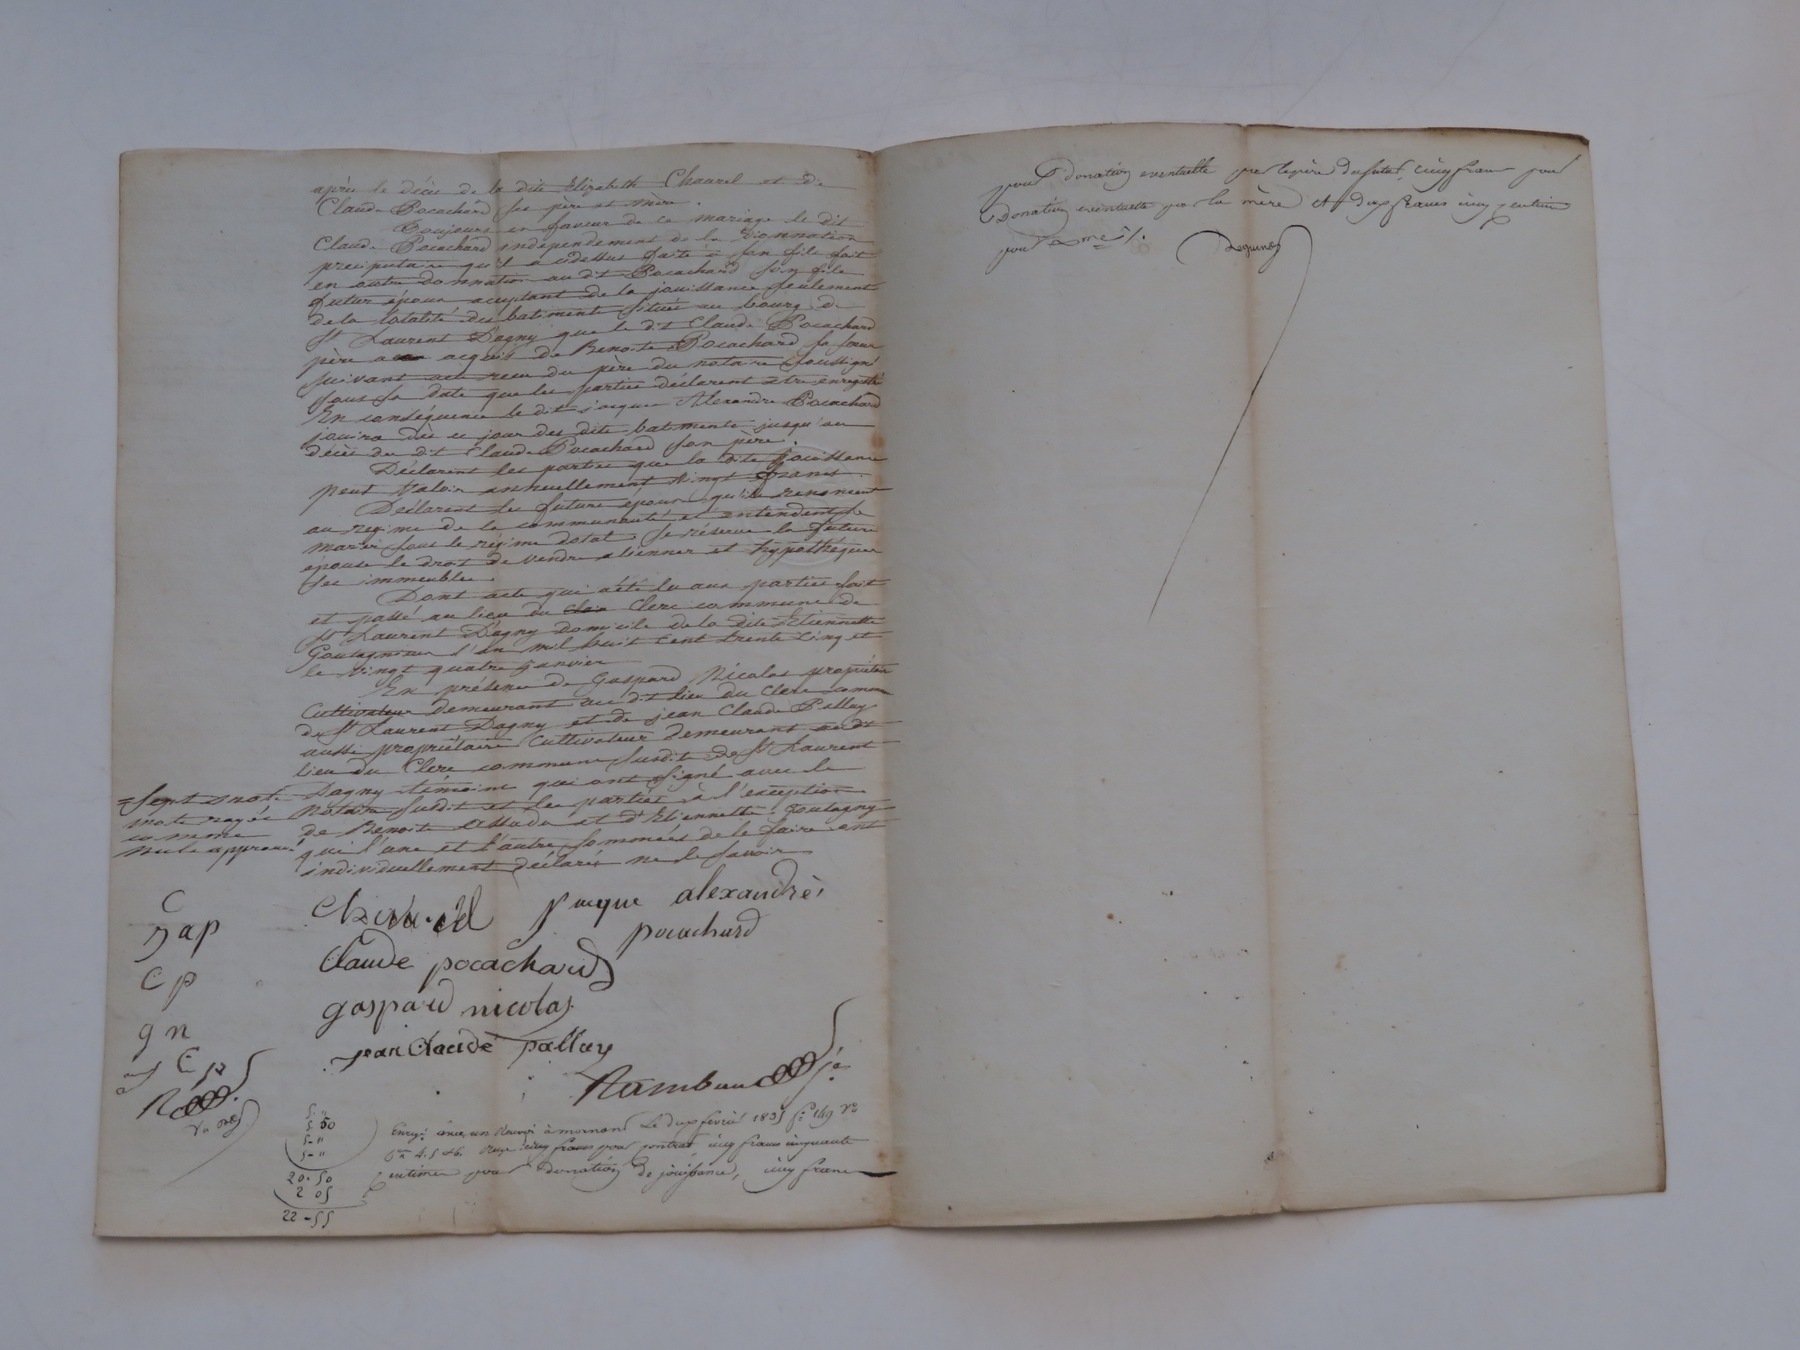 après le décès de la dite Elizabeth Chaurel et de
Claude Pocachard ses père et mère.
Toujours en faveur de ce mariage le dit
Claude Pocachard independement de la donnation
preciputaire qu'il a cidessus faite à son fils fait
en outre donnation au dt Pocachard son fils
futur époux acceptant de la jouissance seulement
de la totalité des batiments situés au bourg de
St Laurent Dagny que le dt Claude Pocachard
père a acquis de Benoite Pocachard sa sœur
suivant acte reçu du père du notaire soussigné
sous sa date que les parties déclarent etre enregistré
En conséquence le dit Jacque Alexandre Pocachard
jouira dès ce jour des dits batiments jusqu'au
décès du dt Claude Pocachard son père.
Déclarent les parties que la dite jouissance
peut valoir annuellement vingt francs.
Déclarent les future époux qu'ils renoncent
au regime de la communauté et entendent se
marier sous le régime dotal. Se réserve la future
épouse le droit de vendre alienner et hypothéquer
ses immeubles.
Dont acte qui a été lu aux parties fait
et passé au lieu du Clerc commune de
St Laurent Dagny domicile de la dite Etiennette
Goutagneux l'an mil huit cent trente cinq et
le vingt quatre janvier
En présence de Gaspard Nicolas propriétaire
Cultivateur demeurant au dit lieu du Clerc commune
de St Laurent Dagny et de jean Claude Pallay
aussi propriétaire Cultivateur demeurant au dt
lieu du Clerc commune susdite de St Laurent
Dagny témoins qui ont signé avec le
notaire susdit et les parties à l'exception
de Benoite et d'Etiennette Goutagny
qui l'une et l'autre sommées de le faire ont
individuellement déclaré ne le savoir
= sept
mots rayés
comme
nuls approuvé
C
J a p
C P
g n
J C p
Chaurel Jacque alexandre
pocachard
Claude pocachard
gaspard nicolas
jean Claude pallay
5 "
5 50
5 - "
5 - "
20 - 50
2 05
22 - 55
Enregt à mornant Le dix fevrier 1835 fo 149 Vo
Cn 4.5 & 6. Reçu cinq francs pour contrat cinq francs cinquante
centimes pour donation de jouissance, cinq francs
pour donation eventuelle par le père du futur cinq francs pour
Donation eventuelle par la mère et deux francs cinq centimes
pour